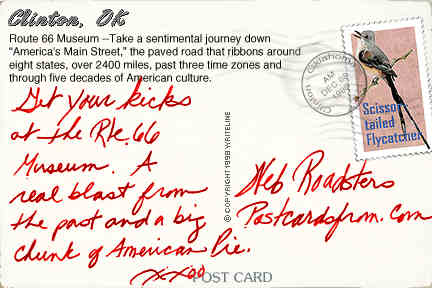 Clinton, OK
Route 66 Museum --Take a sentimental journey down
"America's Main Street," the paved road that ribbons around
eight states, over 2400 miles, past three time zones and
through five decades of American culture.
Get your kicks
at the Rte. 66
Museum. A
real blast from
the past and a big
chunk of American Pie.
xxoo
© COPYRIGHT 1998 WRITELINE
Clinton Oklahoma
AM
DEC
Scissor-
tailed
Flycatcher
Web Roadsters
Postcardsfrom.com
POST CARD